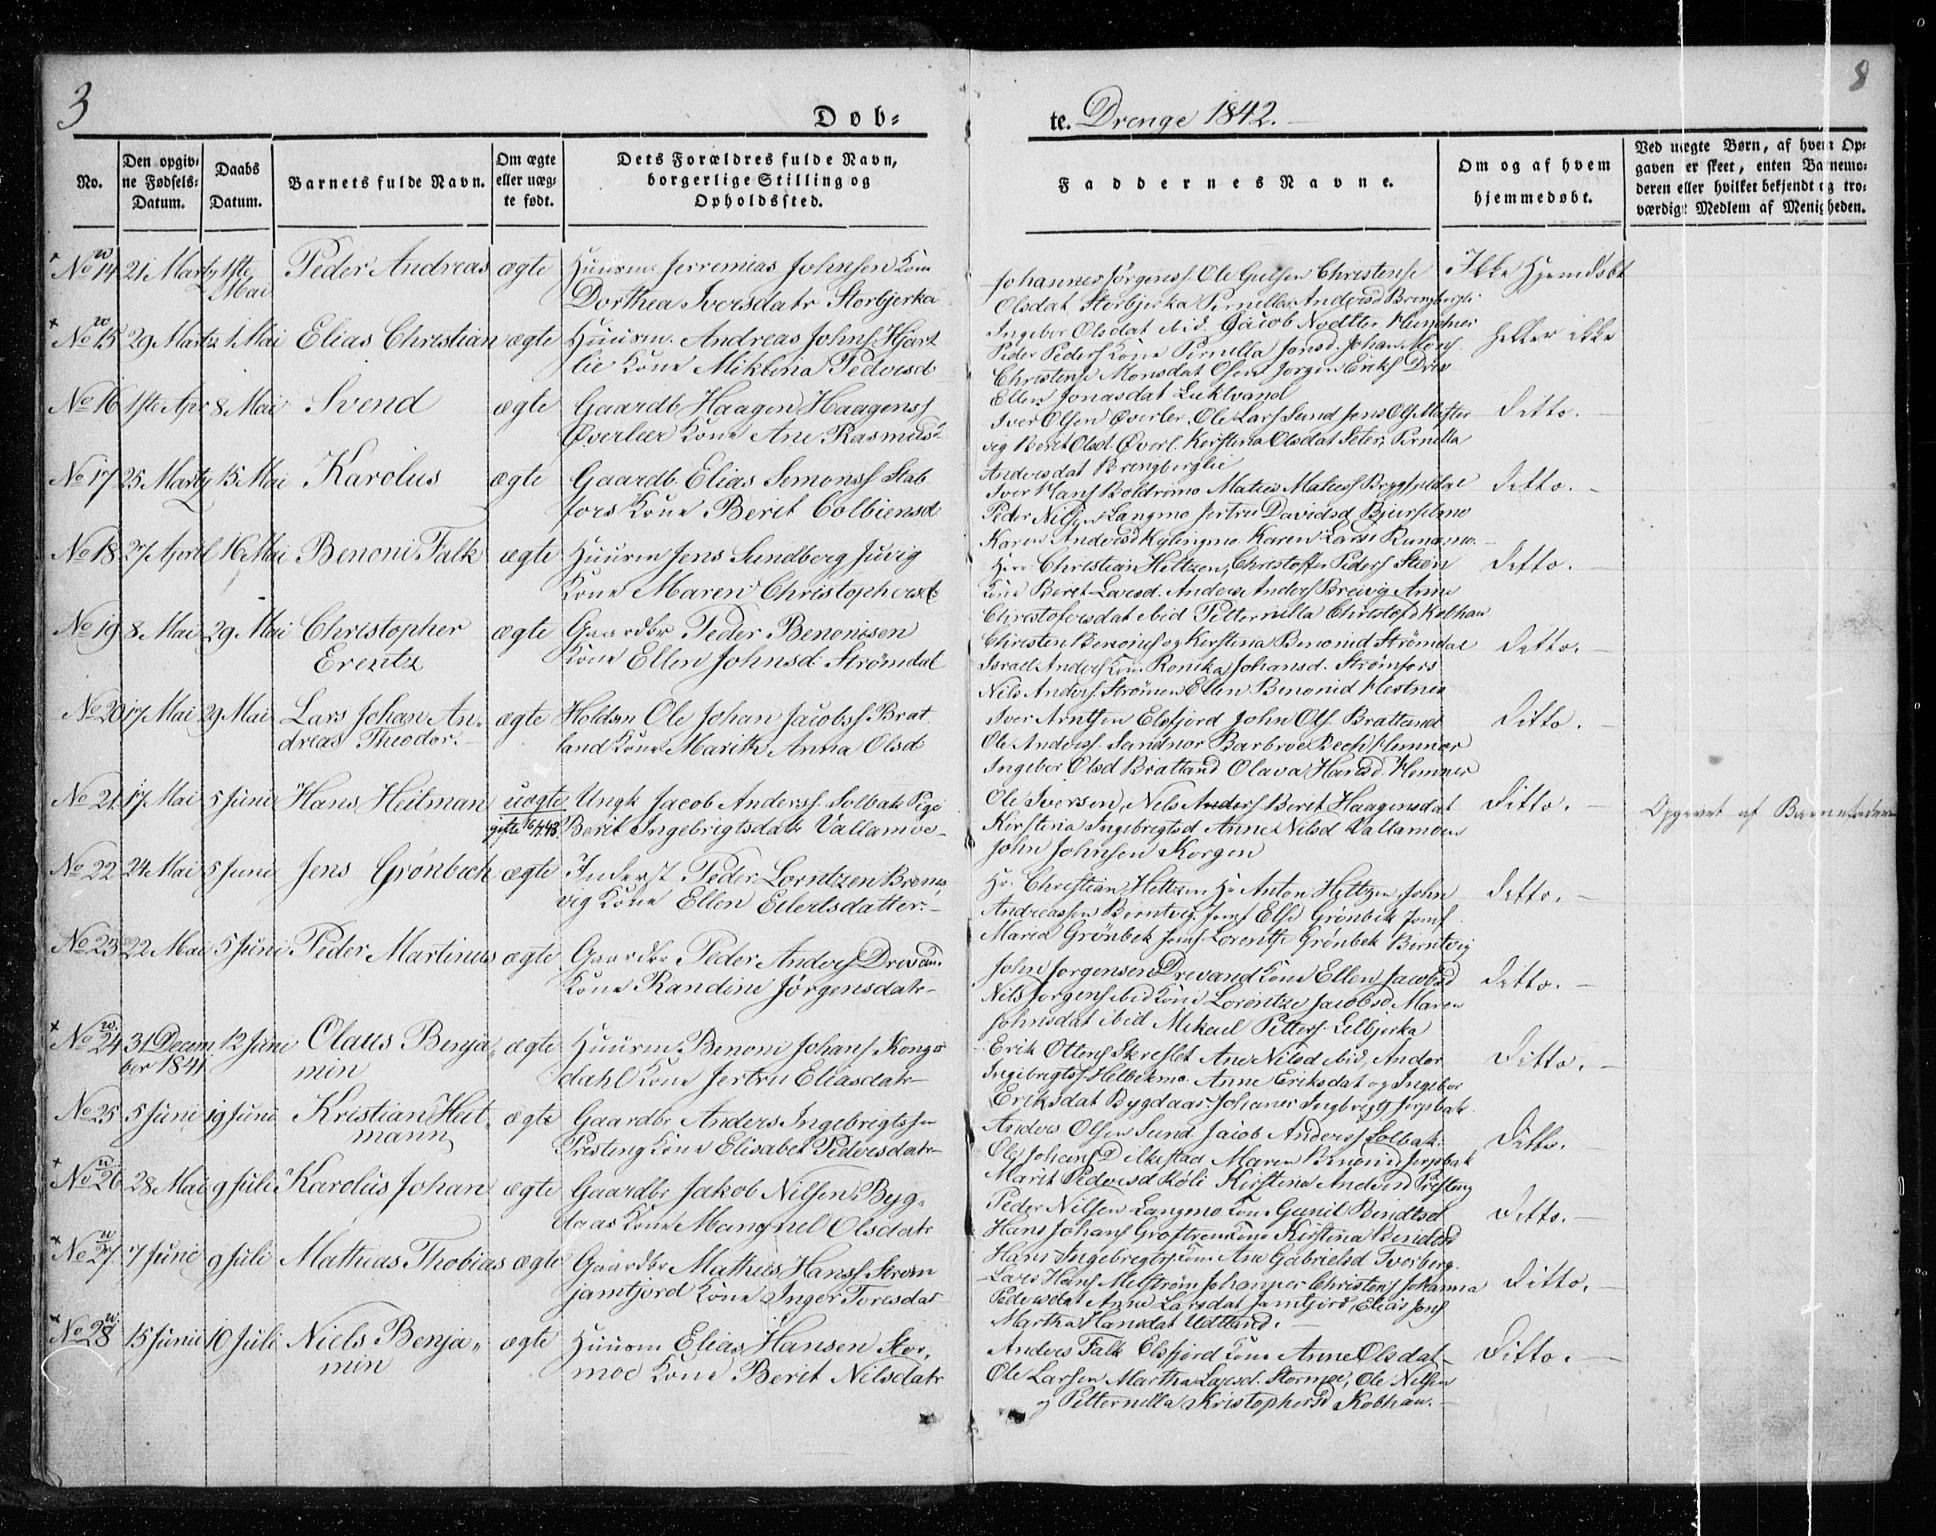 3
8
Døb-
te. Drenge 1842.
No.
Den opgiv-
ne Fødsels-
Datum.
Daabs
Datum.
Barnets fulde Navn.
Om ægte
eller uæg-
te født.
Dets Forældres fulde Navn,
borgerlige Stilling og
Opholdssted.
Faddernes Navne.
Om og af hvem
hjemmedøbt.
Ved uægte Børn, af hvem Op-
gaven er skeet, enten Barnemo-
deren eller hvilket bekjendt og tro-
værdigt Medlem af Menigheden.
No 14 21 Martz 1ste Mai Peder Andreas ægte Huusm. Jerremias Johnsen Kone
Dorthea Iversdatr Storbjerka
Johannes Jörgenss. Ole Christense
Olsdat Storbjerka Pernella Andersd
Ikke Hjemdøbt
No 15 29 Martz 1 Mai Elias Christian ægte Huusm. Andreas Johns Hjart
lie Kone Miklina Pedersd
Ingebor Olsdat ibid. Jacob
Peder Peders Kone Pernella Jonsd. Johan Mons
Christense Monsdat Jorgen Eriks Drev
Ellen Jonasdat Luktvand
heller ikke
No 16 1ste Apr 8 Mai Svend ægte Gaardb Haagen Haagenss
Øverleer Kone Ane Rasmus
Iver Olsen Øverler. Ole Lars Sund Jens Ols
vig Berit Olsd. Øverl. Kirstina Olsdat Seter Pernella
Andersdat
Ditto.
No 17 25 Martz 15 Mai Karolus ægte Gaardb. Elias Semonss Stab
fors Kone Berit Colbiensd
Iver Hans Boldrimo Mateis Mateiss Bryggfieldal
Peder Nilsen Langmo Jertru Davidsd
Karen Andersd Karen Larsd
Ditto.
No 18 27 April 16 Mai Benoni Falk ægte Huusm Jens Sundberg Juvig
Kone Maren Christophersd
Herr Christian Heltzen, Christoffer Peders Steen
Kone Beret Larsd. Anders Anders Breivig Anne
Christofersdat ibid Petternilla Christofd Kobhau
Ditto.
No 19 8 Mai 29 Mai Christopher
Erentz
ægte Gaardbr Peder Benonisen
Kone Ellen Johnsd. Strömdal
Christen Benonis og Kirstina Benonid Strömdal
Israel Anders Kone Ronika Johansd. Strömfors
Nils Anders. Strömen Ellen Benonid Hestnes
Ditto.
No 20 17 Mai 29 Mai Lars Johan An-
dreas Theodor.
ægte Holdsm Ole Johan Jacobss Brat
land Kone Marith Anna Olsd
Iver Arntsen Elsfjord John Ols. Bratland
Ole Anderss. Sandnor Barbroe Bech Hemnes
Ingebor Olsd Bratland Olava Hansd. Hemnes
Ditto.
No 21 17 Mai 5 Juni Hans Heitman uægte Ungk Jacob Anderss. Solbak Pige
Berit Ingebrigtsdatr Vallamoe
Ole Iversen, Nels Anders Berit Haagensdat
Kirstina Ingebrigtsd Anne Nilsd Vallamoen
John Johnsen Korgen
Ditto.
Opgivet af Barnefaderen
No 22 24 Mai 5 Juni Jens Grönbech ægte Inderst Peder Lorntzen Brems
vig Kone Ellen Eilertsdatter.
Hr. Christian Heltzen Hr Anton Heltzen John
Andreassen Jomf Else Grönbek Jomf
Maren Grönbek Jomf Lorentse Grönbek
Ditto.
No 23 22 Mai 5 Juni Peder Martinus ægte Gaardbr Peder Anders Drevand.
Kone Randine Jörgensdatr
John Jorgensen Drevand Kone Ellen Jacobsd
Nils Jorgens ibid Kone Lorentze Jacobsd. Maren
Johnsdat ibid Mekael Petters. Lelbjerka
Ditto.
No 24 31 Decem
ber 1841 12 Juni Olaus Benja-
min
ægte Huusm Benoni Johans Kongs
dahl Kone Jertru Eliasdatr
Erik Ottens Skreslet Ane Nilsd ibid, Ander
Ingebrigts. Anne Eriksdat og Ingebor
Eriksdat Bygdaas. Johaner Ingbrigt Jerpbak
Ditto.
No 25 5 Juni 19 Juni Kristian Heit
mann
ægte Gaardbr Anders Ingebrigtssen
Presteng Kone Elisabet Pedersdatr
Anders Olsen Sund Jacob Anderss Solbak
Ole Johans Maren Benonid Jerpbak
Marit Pedersd Röli Kirstina Andersd Presteng
Ditto.
No 26 28 Mai 9 Juli Karolus Johan ægte Gaardbr Jakob Nilsen Byg-
daas Kone Mangnel Olsdatr
Peder Nilsen Langmo Kone Gunil Bendtsd
Hans Johans Kone Kirstina
Hans Ingebrigts Kone Ane Gabrielsd Tverberg.
Ditto.
No 27 7 Juni 9 Juli Mathias Thobias ægte Gaardbr Mathies Hanss Strøm
jamtjord Kone Inger Toresdat
Lars Hans Melström Johannes Christens Johanna
Pedersdat Anne Larsdat Jamtjord, Elias Jons
Martha Hansdat
Ditto.
No 28 15 Juni 10 Juli Niels Benja-
min
ægte Huusm Elias Hansen Stor
moe Kone Berit Nilsdatr
Anders Falk Elsfjord Kone Anne Olsdat
Ole Larsen Martha Larsd. Stormoe, Ole Nilsen
og Petternilla Kristophersd Kobhau.
Ditto.